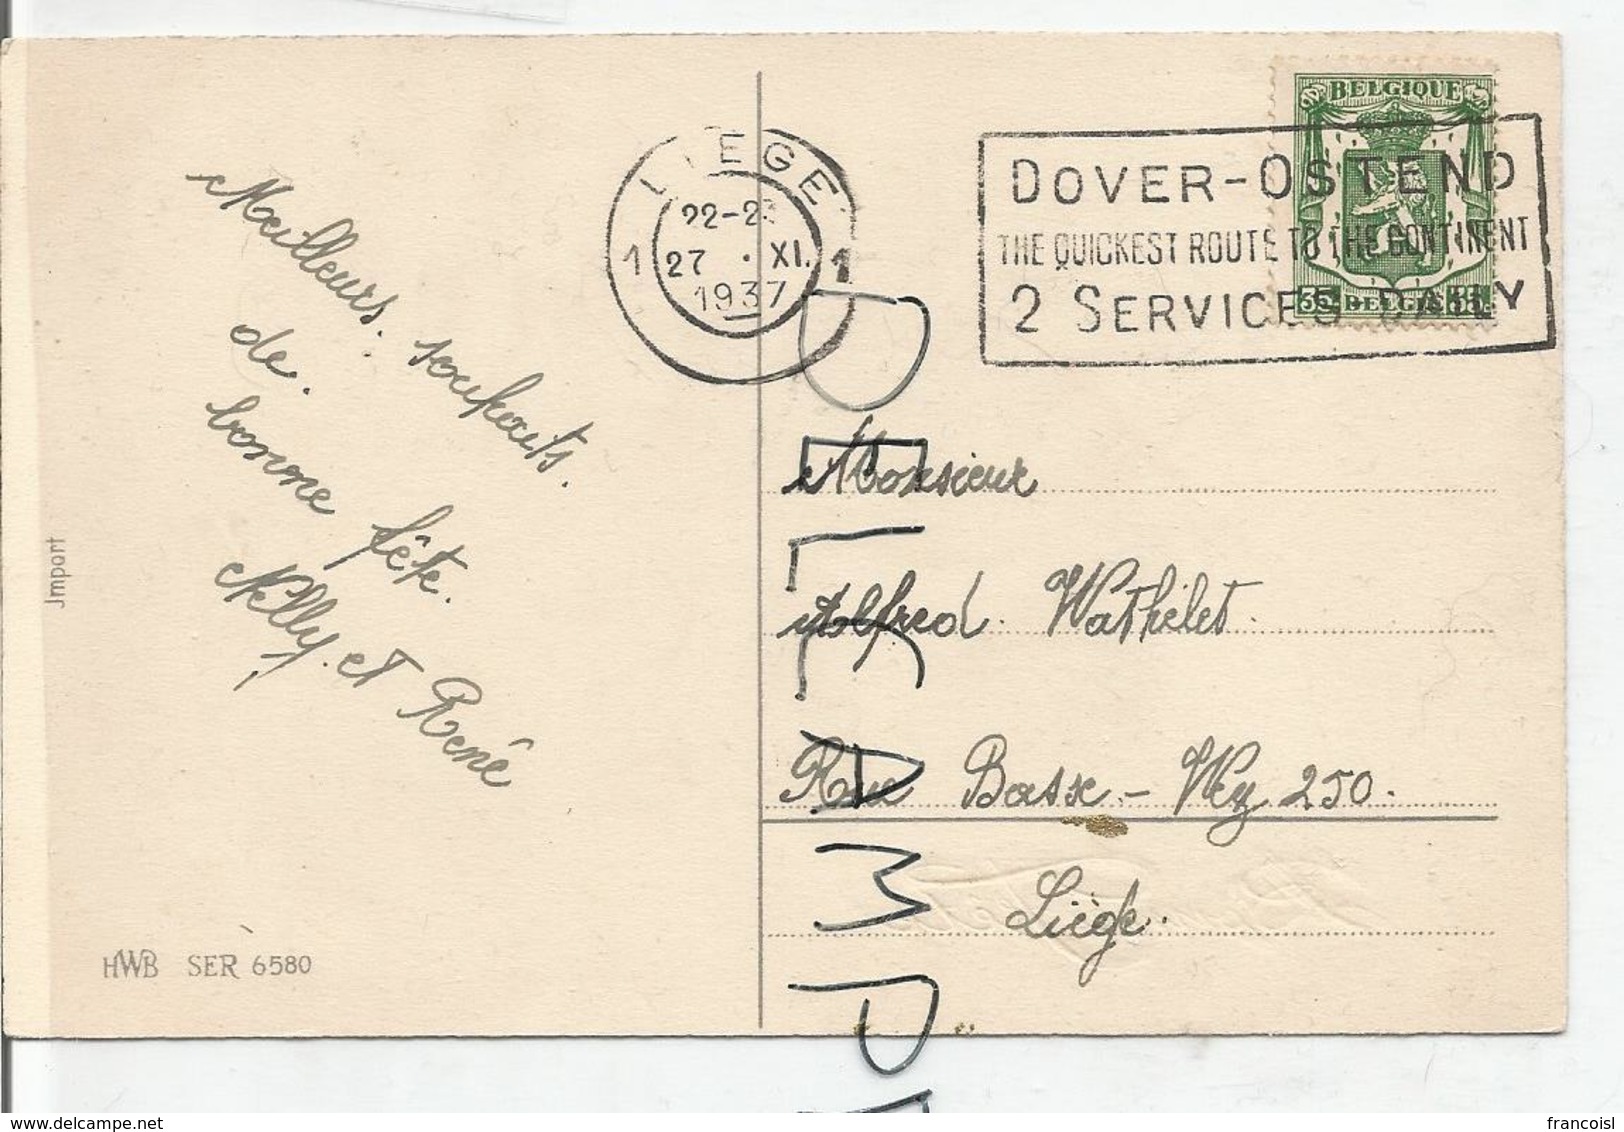 Meilleurs. souhaits.
de.
bonne fête.
Nelly. et René
Jmport
HWB SER 6580
LIEGE
22-23
1 27 . XI. 1
1937
DOVER-OSTEND
THE QUICKEST ROUTE TO THE CONTINENT
2 SERVICES DAILY
BELGIQUE
35 BELGIË 35
Monsieur
Alfred. Wathelet.
Rue Basse-Wez 250.
Liège.
DELCAMPE
francoisl